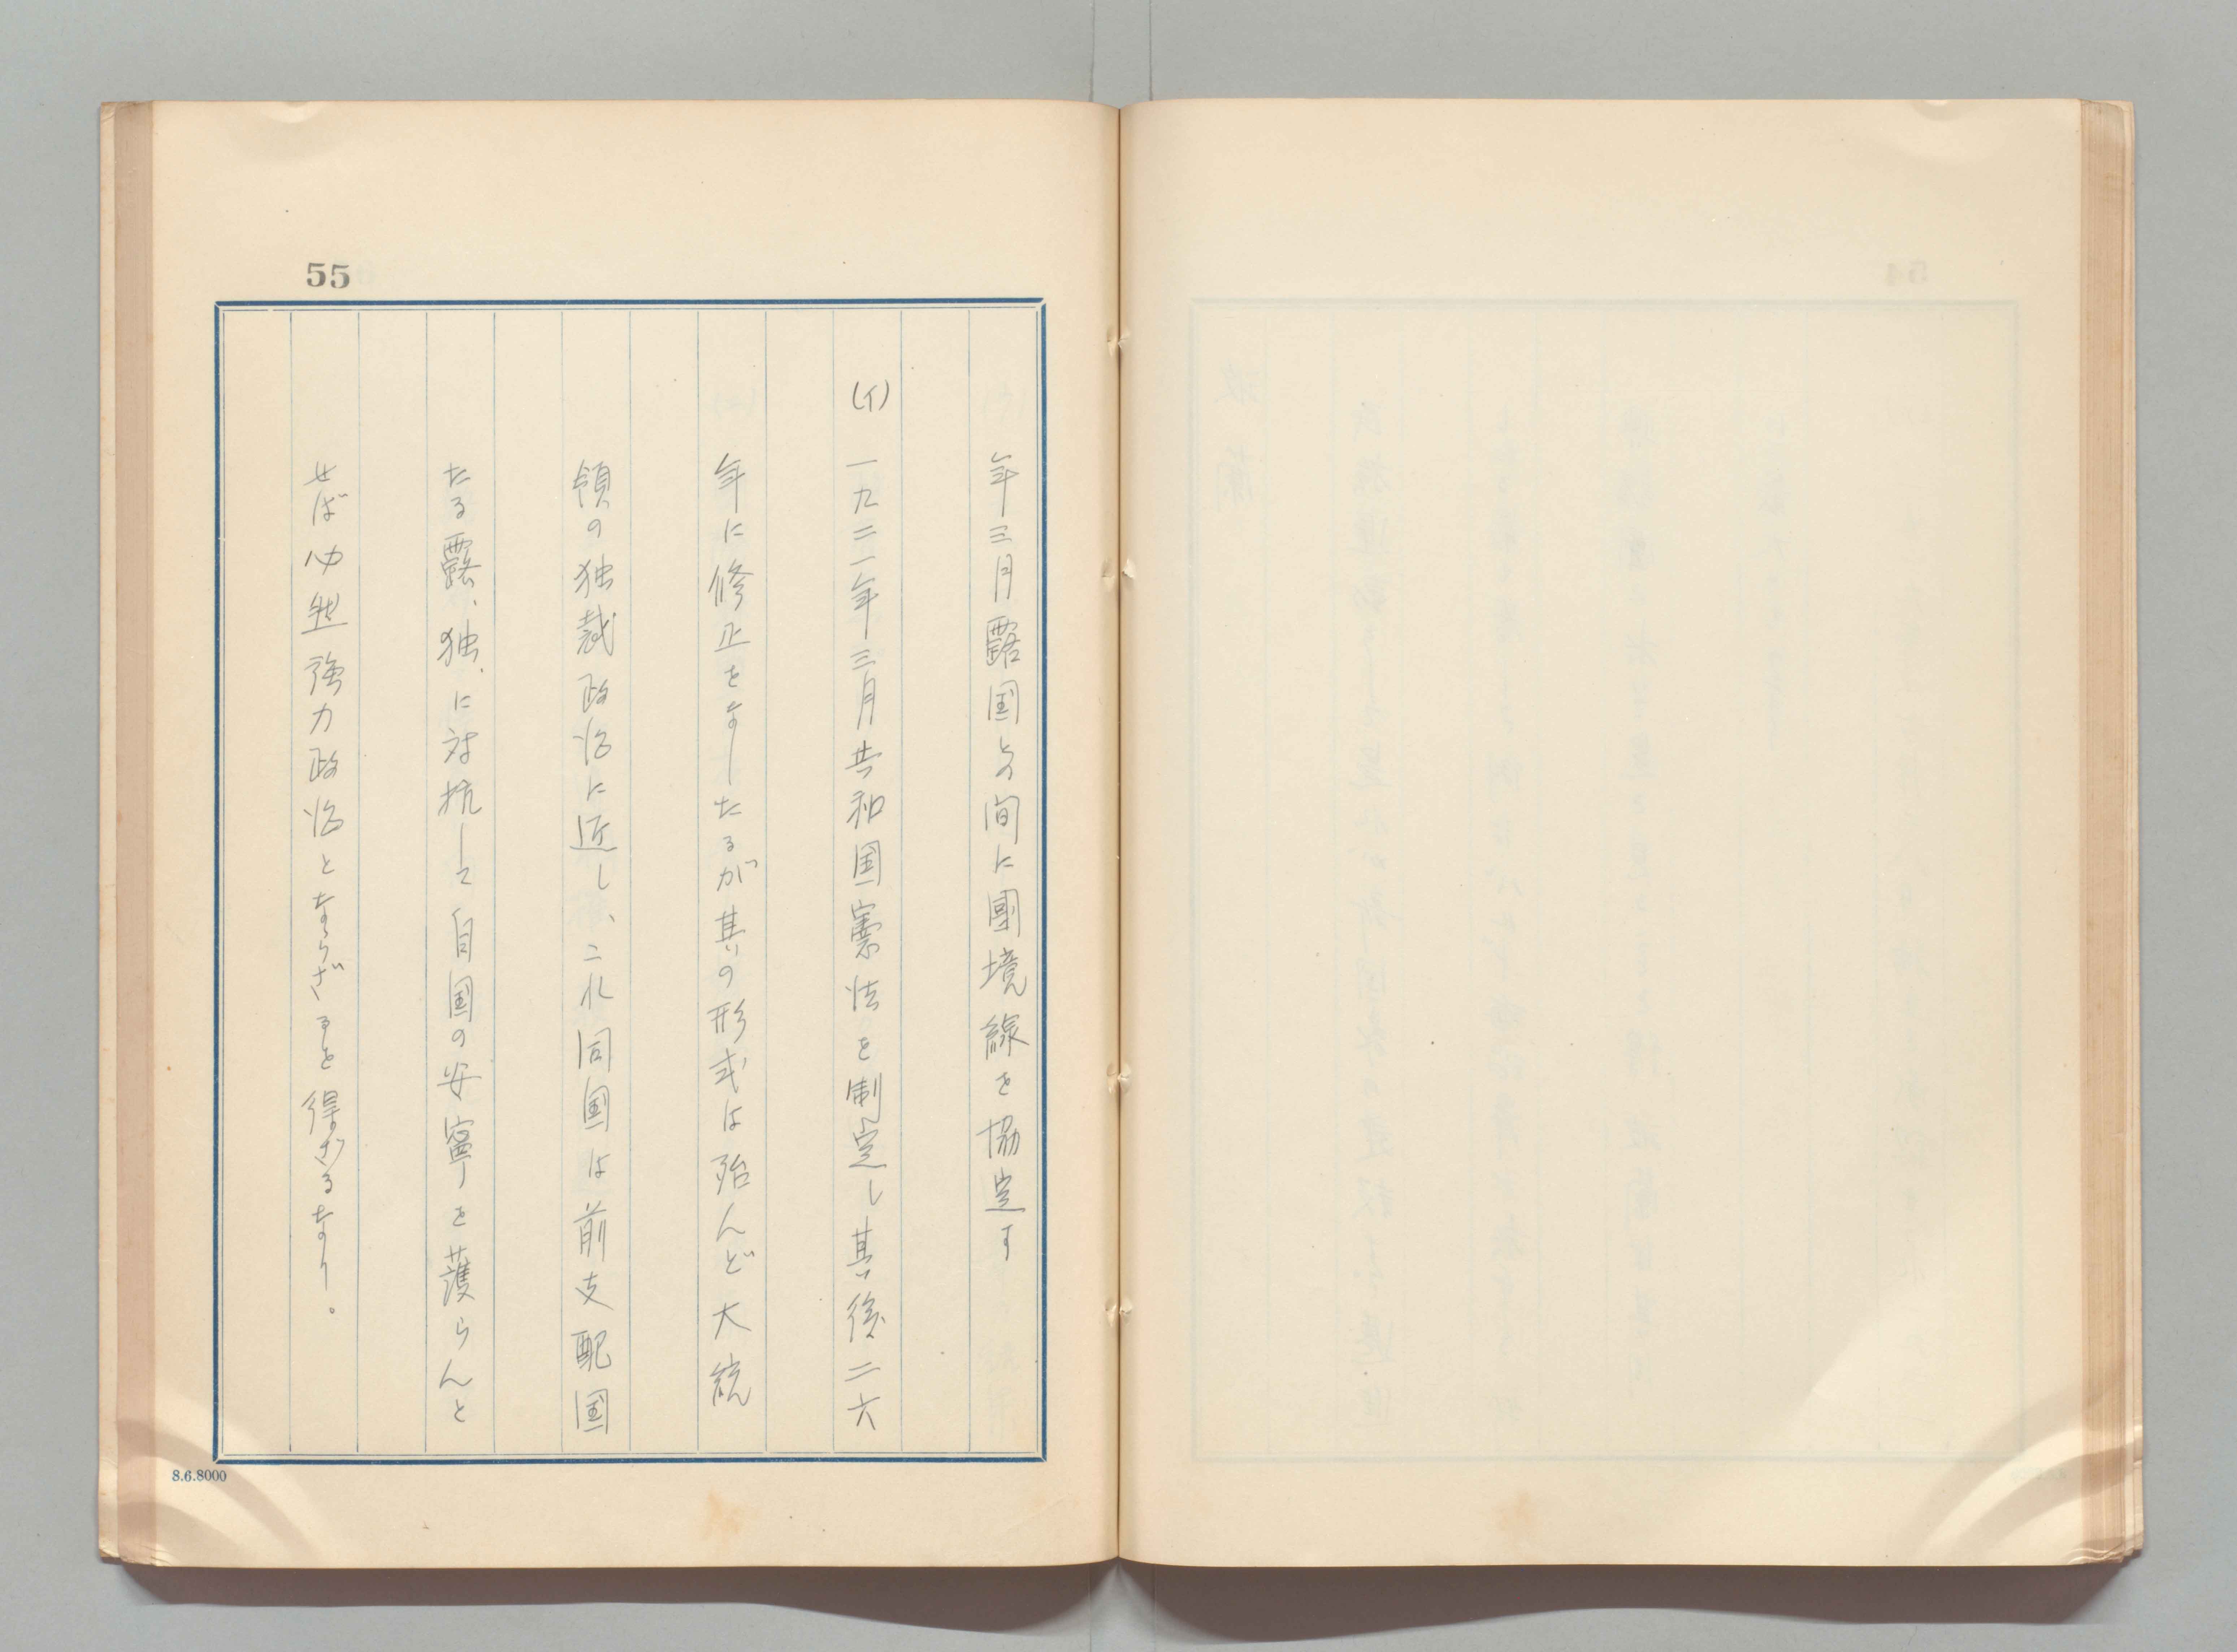 55
年三月露国との間に國境線を協定す
(イ) 一九二一年三月共和国憲法を制定し其後二六
年に修正をなしたるが其の形式は殆んど大統
領の独裁政治に近し、これ同国は前支配国
たる露、独、に対抗して自国の安寧を護らんと
せば必然強力政治とならざるを得ざるなり。
8.6.8000